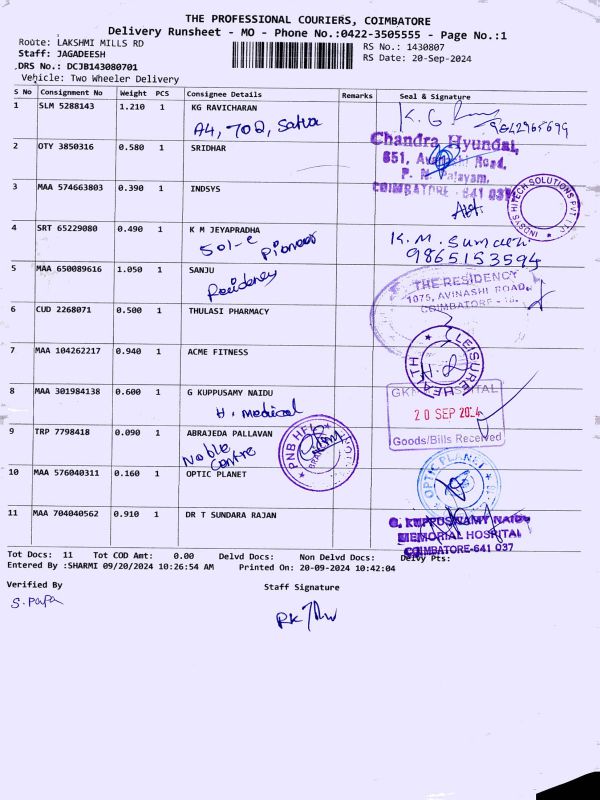 THE PROFESSIONAL COURIERS, COIMBATORE
Delivery Runsheet - MO - Phone No.:0422-3505555 - Page No.:1
Route: LAKSHMI MILLS RD
RS No.: 1430807
Staff: JAGADEESH
RS Date: 20-Sep-2024
DRS No.: DCJB143080701
Vehicle: Two Wheeler Delivery
S No Consignment No Weight PCS Consignee Details Remarks Seal & Signature
1 SLM 5288143 1.210 1 KG RAVICHARAN
A4, 702,
2 OTY 3850316 0.580 1 SRIDHAR
Chandra Hyundai,
651, Road,
P. N. Palayam,
COIMBATORE - 641 037
3 MAA 574663803 0.390 1 INDSYS
HITECH SOLUTIONS PVT LTD
4 SRT 65229080 0.490 1 K M JEYAPRADHA
501-C Pioneer
K.M.
9865153594
5 MAA 650089616 1.050 1 SANJU
Residency
THE RESIDENCY
1075, AVINASHI ROAD,
COIMBATORE - 18.
6 CUD 2268071 0.500 1 THULASI PHARMACY
7 MAA 104262217 0.940 1 ACME FITNESS
LEISURE HEALTH
8 MAA 301984138 0.600 1 G KUPPUSAMY NAIDU
H. medical
HOSPITAL
20 SEP 2024
Goods/Bills Received
9 TRP 7798418 0.090 1 ABRAJEDA PALLAVAN
Noble
Centre
PNB
10 MAA 576040311 0.160 1 OPTIC PLANET
OPTIC PLANET
11 MAA 704040562 0.910 1 DR T SUNDARA RAJAN
G. KUPPUSWAMY NAIDU
MEMORIAL HOSPITAL
COIMBATORE-641 037
Tot Docs: 11 Tot COD Amt: 0.00 Delvd Docs: Non Delvd Docs: Delvy Pts:
Entered By :SHARMI 09/20/2024 10:26:54 AM Printed On: 20-09-2024 10:42:04
Verified By Staff Signature
S. Papa